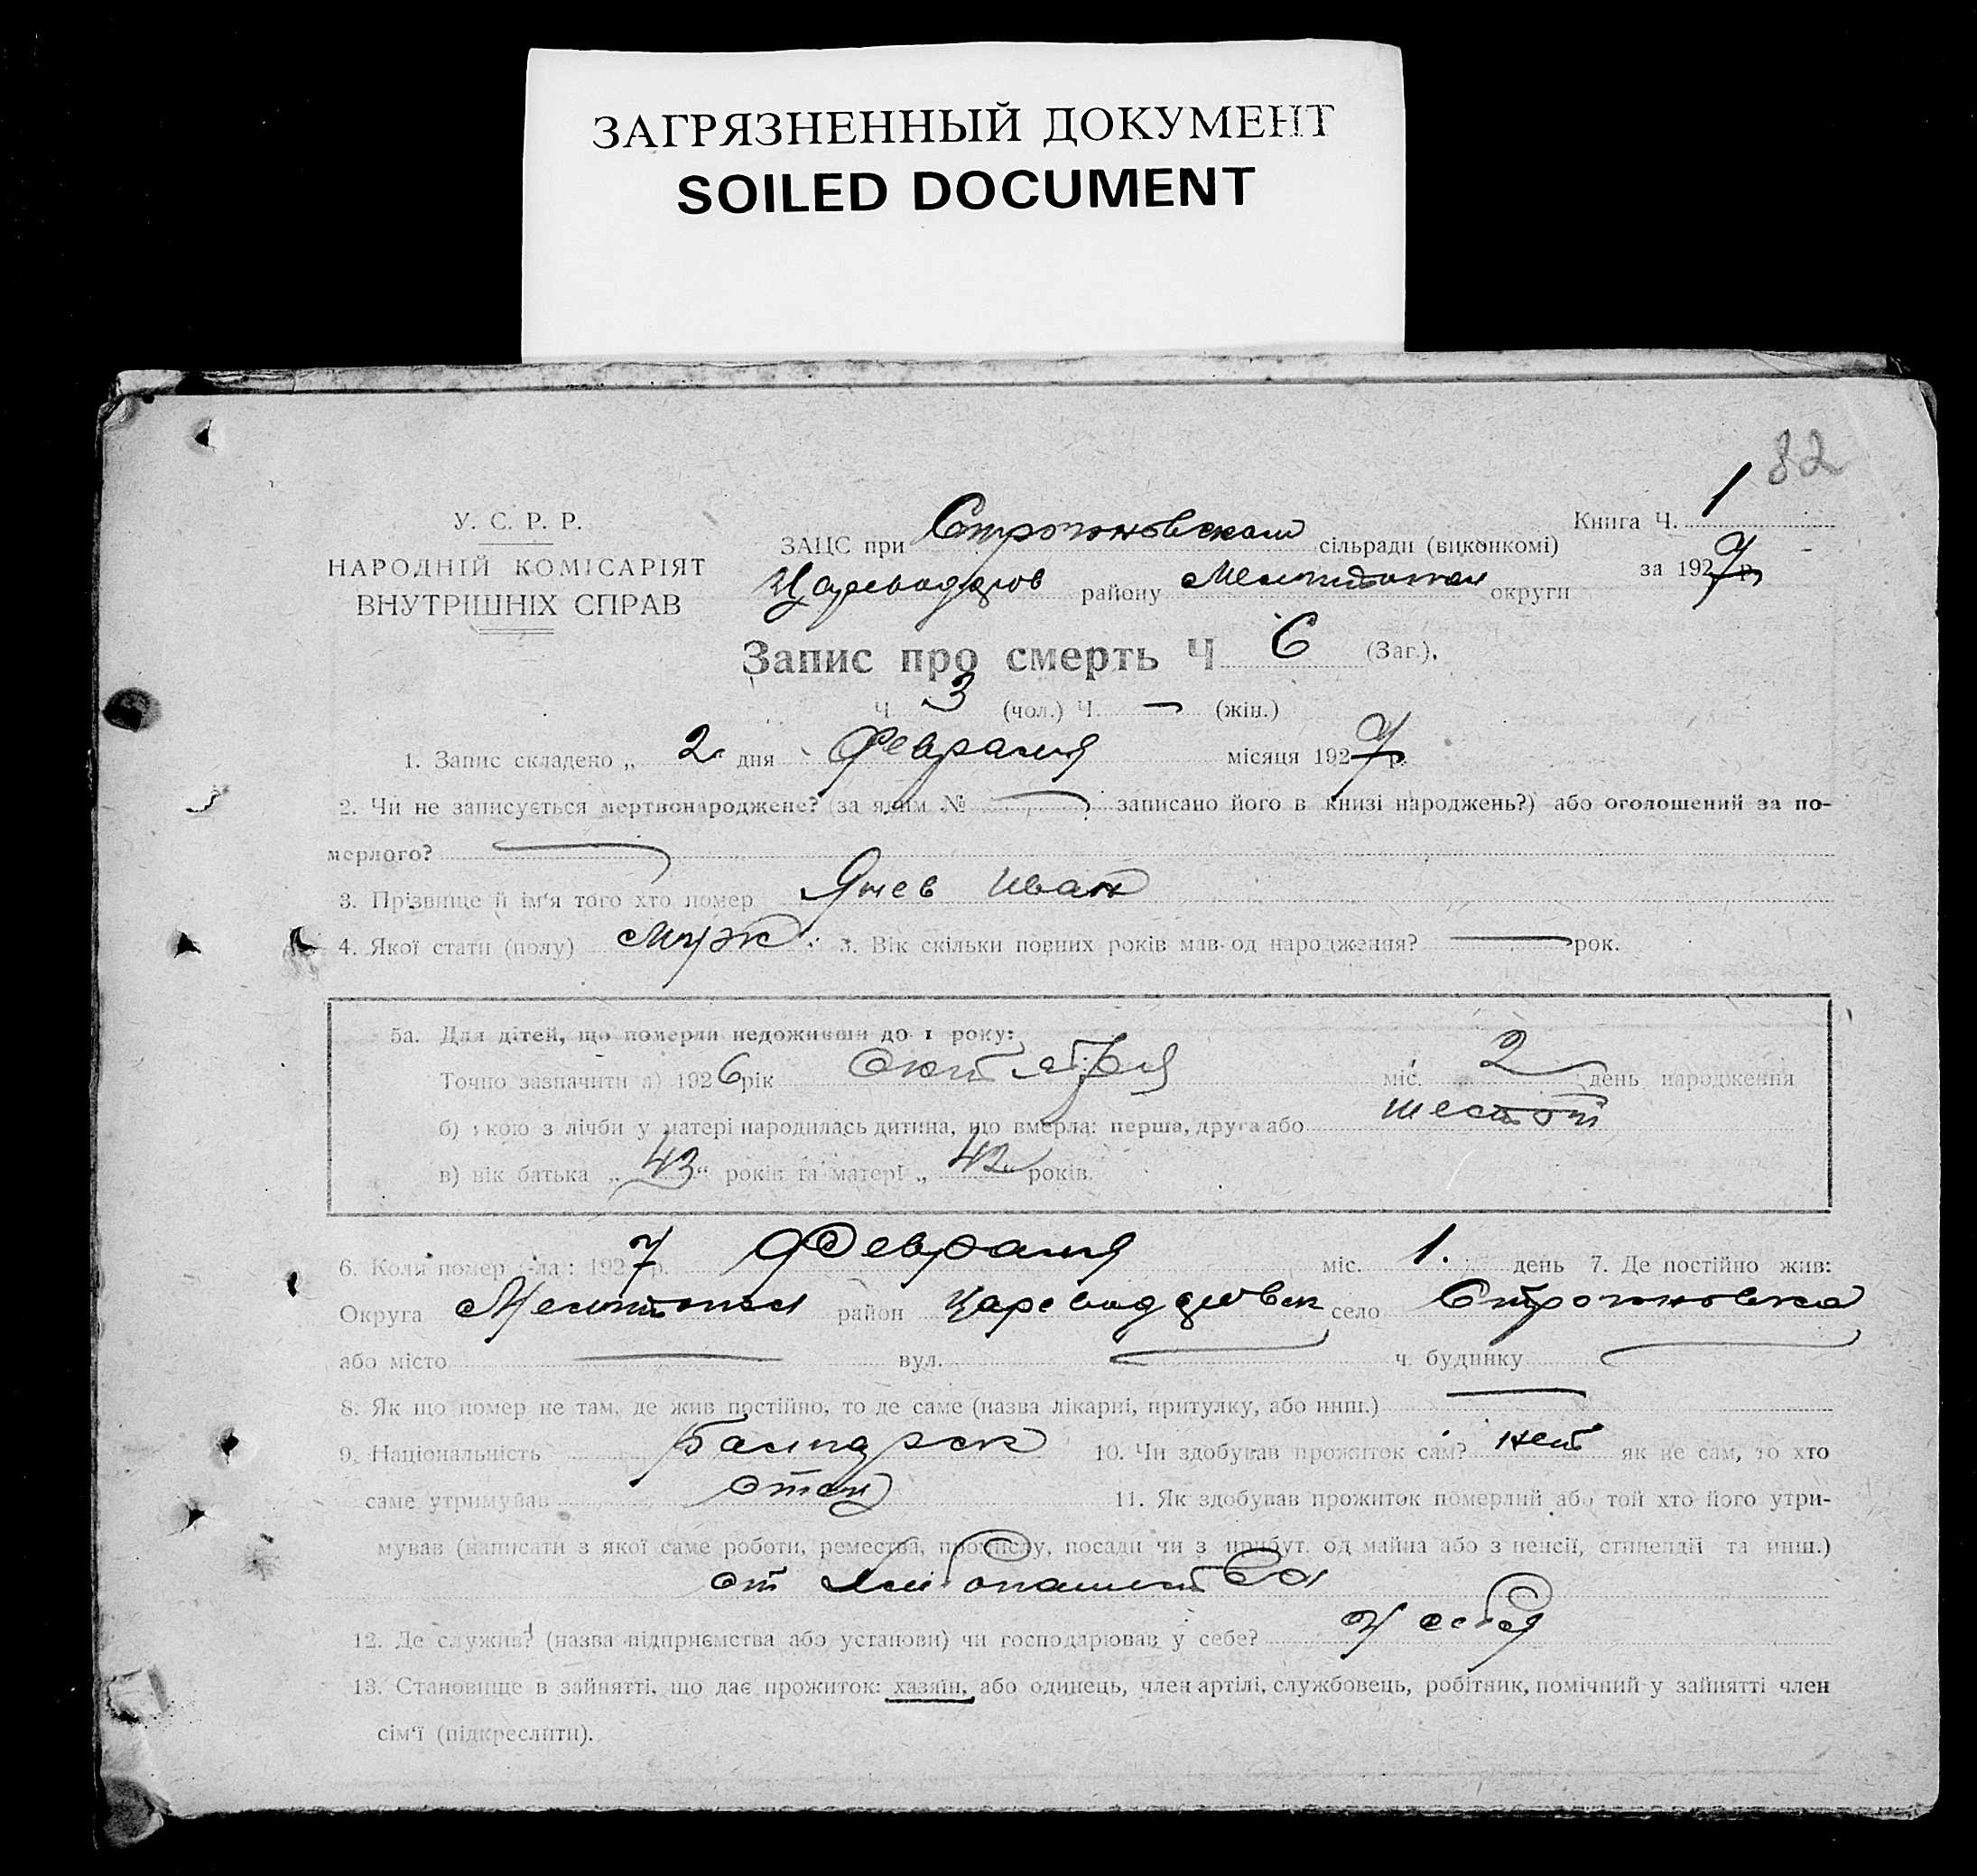 ЗАГРЯЗНЕННЫЙ ДОКУМЕНТ
SOILED DOCUMENT
82
У. С. Р. Р.
НАРОДНІЙ КОМІСАРІЯТ
ВНУТРІШНІХ СПРАВ
ЗАЦС при Строгоновском сільради (виконкомі)
Книга Ч. 1
району округи
за 1927 р.
Запис про смерть Ч 6 (Заг.).
Ч. 3 (чол.) Ч. — (жін.)
1. Запис складено „ 2 дня Февраля місяця 1927 р.
2. Чи не записується мертвонароджене? (за яким № — записано його в книзі народжень?) або оголошений за по-
мерлого? —
3. Прізвище й ім'я того хто помер Янев Иван
4. Якої стати (полу) муж. 5. Вік скільки повних років мав од народження? — рок.
5а. Для дітей, що померли недоживши до 1 року:
Точно зазначити а) 1926 рік Октября міс. 2 день народження
б) якою з лічби у матері народилась дитина, що вмерла: перша, друга або шестой
в) вік батька „ 43 “ років та матері „ 42 “ років.
6. Коли помер (-ла): 1927 р. Февраля міс. 1. день 7. Де постійно жив:
Округа район село Строгоновка
або місто — вул. — ч. будинку —
8. Як що помер не там, де жив постійно, то де саме (назва лікарні, притулку, або инш.) —
9. Національність 10. Чи здобував прожиток сам? нет як не сам, то хто
саме утримував отец 11. Як здобував прожиток померлий або той хто його утри-
мував (написати з якої саме роботи, ремества, промислу, посади чи з прибут. од майна або з пенсії, стипендії та инш.)
от хлебопашества
12. Де служив? (назва підприємства або установи) чи господарював у себе? у себя
13. Становище в зайнятті, що дає прожиток: хазяїн, або одинець, член артілі, службовець, робітник, помічний у зайнятті член
сім'ї (підкреслити).